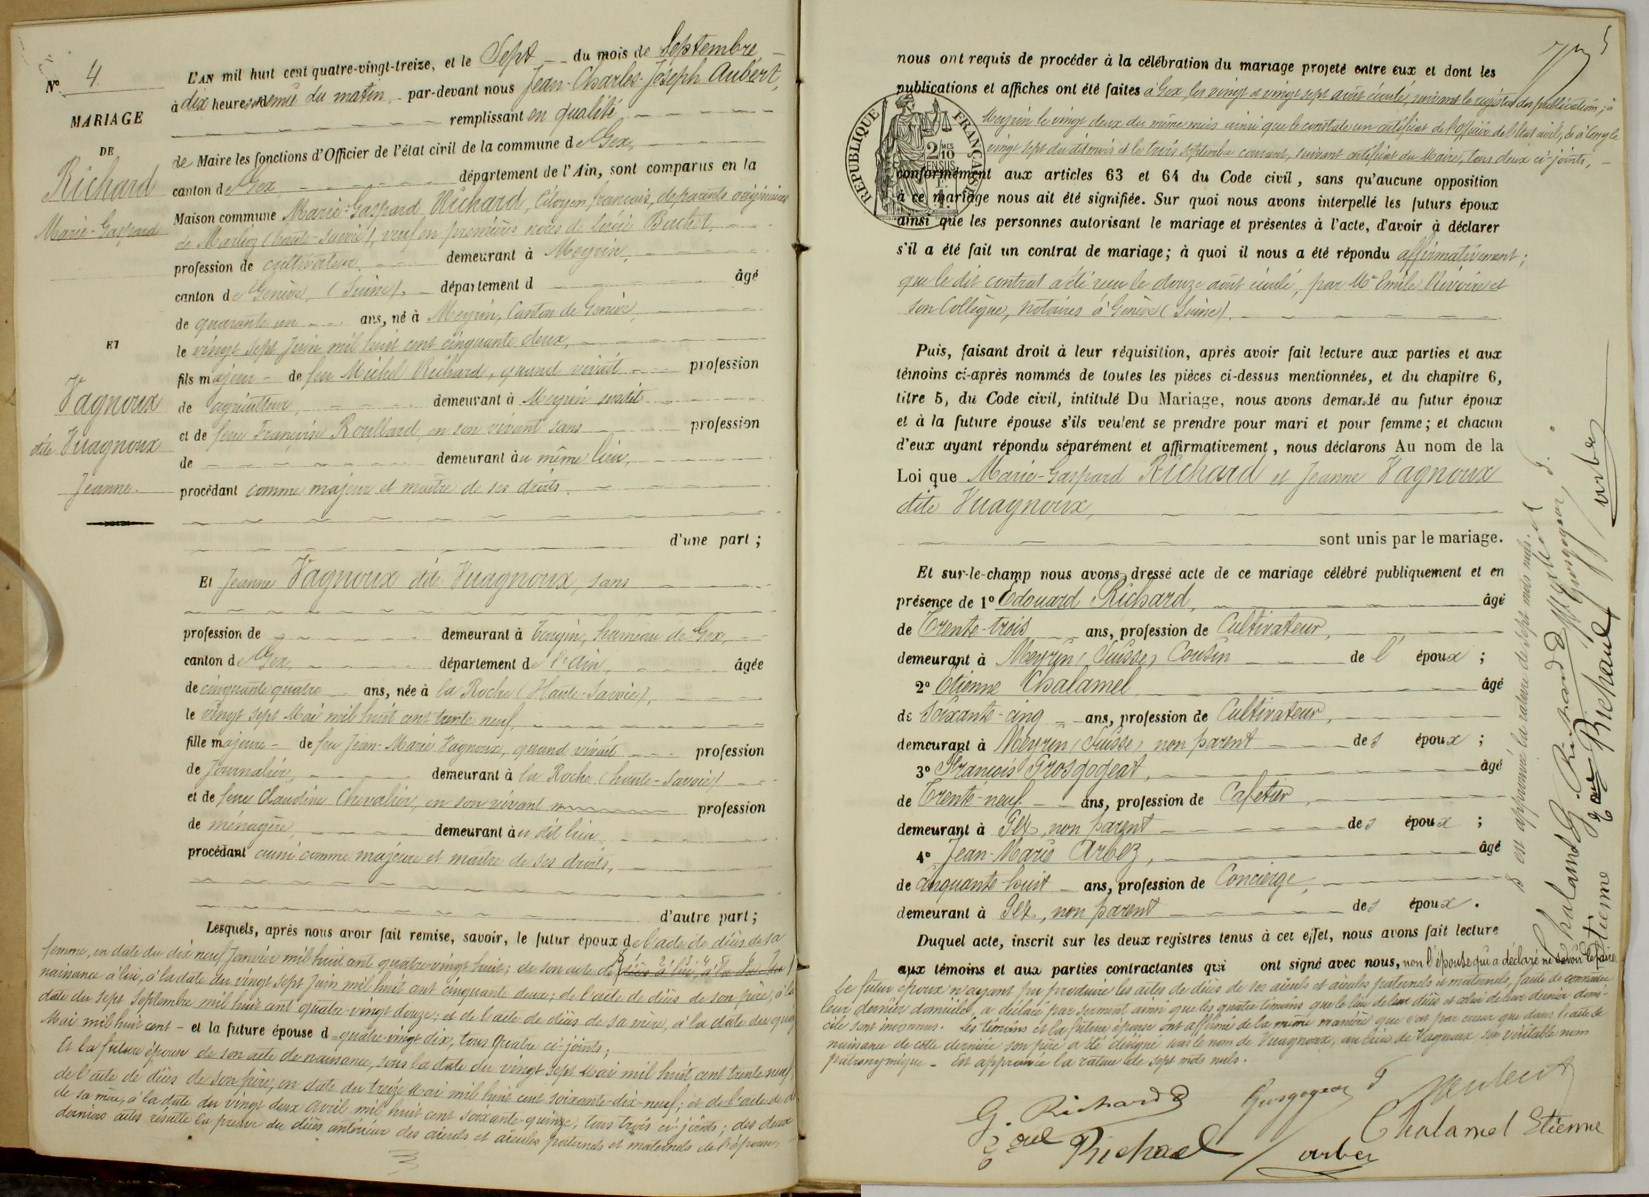 Nº 4
MARIAGE
DE
Richard
Marie-Gaspard
ET
Vagnoux
dite Vuagnoux
Jeanne.
L'AN mil huit cent quatre-vingt-treize, et le Sept du mois de Septembre
à dix heures du matin, par-devant nous Jean-Charles-Joseph Aubert,
remplissant en qualité
de Maire les fonctions d'Officier de l'état civil de la commune de Gex,
canton de Gex, département de l'Ain, sont comparus en la
Maison commune Marie-Gaspard Richard, Citoyen français, de parents originaires
de (haute-Savoie), veuf en premières noces de
profession de cultivateur, demeurant à Meyrin,
canton de Genève, (Suisse), département d âgé
de quarante un ans, né à Meyrin, Canton de Genève,
le vingt sept Juin mil huit cent cinquante deux,
fils majeur de feu Michel Richard, quand vivait profession
de agriculteur, demeurant à Meyrin susdit
et de feue Françoise Roullard, en son vivant sans profession
de demeurant au même lieu,
procédant comme majeur et maître de ses droits.
d'une part ;
Et Jeanne Vagnoux dite Vuagnoux, sans
profession de demeurant à Tougin, hameau de Gex,
canton de Gex, département de l'Ain, âgée
de cinquante quatre ans, née à la Roche (Haute-Savoie),
le vingt sept Mai mil huit cent trente neuf,
fille majeure de feu Jean-Marie Vagnoux, quand vivait profession
de Journalier, demeurant à la Roche (haute-Savoie)
et de feue Claudine Chevalier, en son vivant profession
de ménagère, demeurant au dit lieu
procédant aussi comme majeure et maître de ses droits,
d'autre part ;
Lesquels, après nous avoir fait remise, savoir, le futur époux de l'acte de décès de sa
femme, en date du dix neuf Janvier mil huit cent quatre vingt huit; de son acte de
naissance à lui, à la date du vingt sept Juin mil huit cent cinquante deux; de l'acte de décès de son père, à la
date du sept Septembre mil huit cent quatre-vingt douze; et de l'acte de décès de sa mère, à la date du
Mai mil huit cent et la future épouse d quatre-vingt dix, tous quatre ci-joints;
Et la future épouse de son acte de naissance, sous la date du vingt sept Mai mil huit cent trente neuf
de l'acte de décès de son père, en date du treize Mai mil huit cent soixante-dix-neuf; et de l'acte de
de sa mère, à la date du vingt deux Avril mil huit cent soixante-quinze, tous trois ci-joints; des deux
derniers actes résulte la preuve du décès antérieur des aïeuls et aïeules paternels et maternels de l'épouse,
nous ont requis de procéder à la célébration du mariage projeté entre eux et dont les
publications et affiches ont été faites à Gex, les vingt et vingt sept août écoulé, suivant le registre des publications; à
Meyrin le vingt deux du même mois ainsi que le constate un certificat de l'officier de l'Etat civil, &
vingt sept dudit mois et le trois septembre courant, suivant certificat du Maire, tous deux ci-joints,
RÉPUBLIQUE FRANÇAISE
2/10
EN SUS
conformément aux articles 63 et 64 du Code civil, sans qu'aucune opposition
à ce mariage nous ait été signifiée. Sur quoi nous avons interpellé les futurs époux
ainsi que les personnes autorisant le mariage et présentes à l'acte, d'avoir à déclarer
s'il a été fait un contrat de mariage; à quoi il nous a été répondu affirmativement;
que le dit contrat a été reçu le douze août écoulé, par Mᵉ Emile Rivoire et
son Collègue, notaires à Genève (Suisse).
Puis, faisant droit à leur réquisition, après avoir fait lecture aux parties et aux
témoins ci-après nommés de toutes les pièces ci-dessus mentionnées, et du chapitre 6,
titre 5, du Code civil, intitulé Du Mariage, nous avons demandé au futur époux
et à la future épouse s'ils veulent se prendre pour mari et pour femme; et chacun
d'eux ayant répondu séparément et affirmativement, nous déclarons Au nom de la
Loi que Marie-Gaspard Richard et Jeanne Vagnoux
dite Vuagnoux,
sont unis par le mariage.
Et sur-le-champ nous avons dressé acte de ce mariage célébré publiquement et en
présence de 1º Edouard Richard, âgé
de Trente-trois ans, profession de Cultivateur,
demeurant à Meyrin (Suisse) Cousin de l'époux ;
2º Etienne Chalamel âgé
de Soixante-cinq ans, profession de Cultivateur,
demeurant à Meyrin (Suisse) non parent des époux ;
3º François Grosgogeat, âgé
de Trente-neuf ans, profession de Cafetier,
demeurant à Gex, non parent des époux ;
4º Jean-Marie Arbez, âgé
de cinquante-huit ans, profession de Concierge,
demeurant à Gex, non parent des époux.
Duquel acte, inscrit sur les deux registres tenus à cet effet, nous avons fait lecture
aux témoins et aux parties contractantes qui ont signé avec nous, non l'épouse qui a déclaré ne savoir le faire
Le futur époux n'ayant pu produire les actes de décès de ses aïeuls et aïeules paternels et maternels, faute de connaître
leur dernier domicile, a déclaré par serment ainsi que les quatre témoins que le lieu de leur décès et celui de leur dernier domi-
cile sont inconnus. Les témoins et la future épouse ont affirmé de la même manière que c'est par erreur que dans l'acte de
naissance de cette dernière son père a été désigné sous le nom de Vuagnoux, au lieu de Vagnoux son véritable nom
patronymique. Est approuvée la rature de sept mots nuls.
G. Richard
Edouard Richard
Chalamel Etienne
arbez
est approuvée la rature de sept mots nuls.
Chalamel Etienne
G. Richard
Richard
arbez